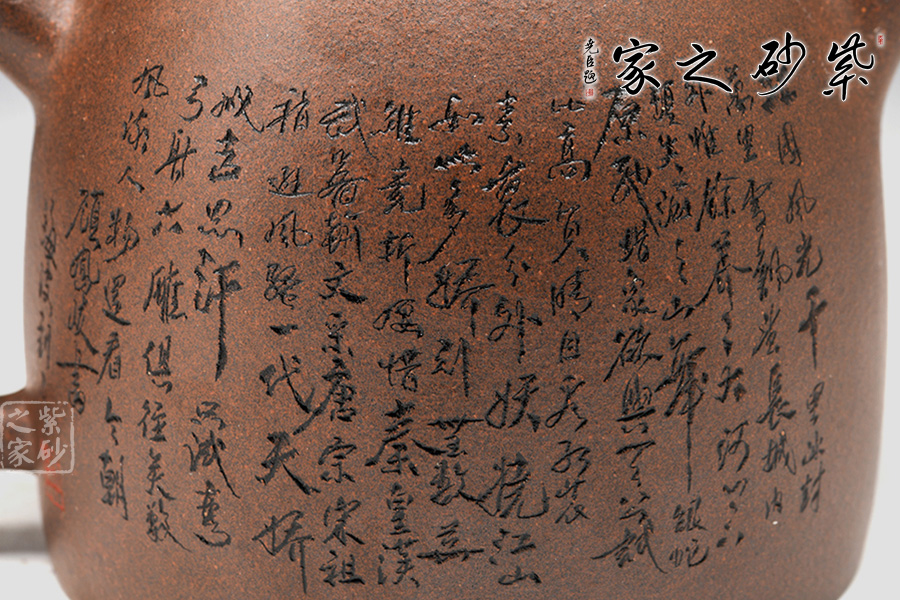 紫砂之家
北国風光千里冰封
萬里雪飘望長城内
外惟餘莽莽大河上下
頓失滔滔山舞銀蛇
原馳蜡象欲與天公試
比高須晴日看紅装
素裹分外妖嬈江山
如此多娇引無数英
雄竞折腰惜秦皇漢
武略输文采唐宗宋祖
稍逊風骚一代天骄
成吉思汗只识弯
弓射大雕俱往矣数
風流人物還看今朝
紫砂之家